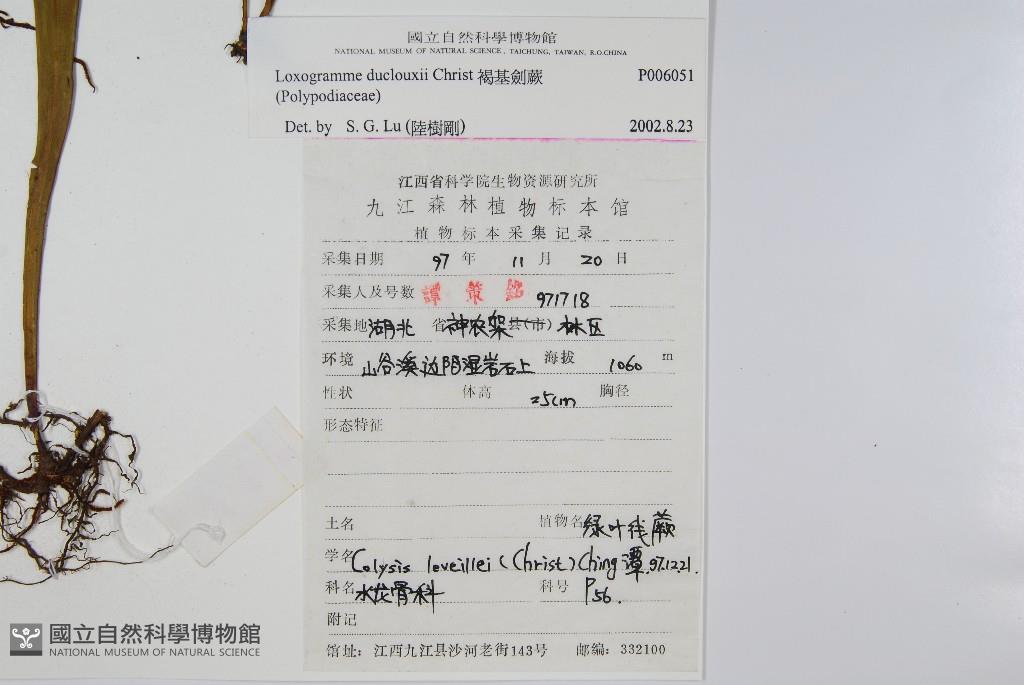 國立自然科學博物館
NATIONAL MUSEUM OF NATURAL SCIENCE, TAICHUNG, TAIWAN, R.O.CHINA
Loxogramme duclouxii Christ 褐基劍蕨 P006051
(Polypodiaceae)
Det. by S. G. Lu (陸樹剛) 2002.8.23
江西省科学院生物资源研究所
九江森林植物标本馆
植物标本采集记录
采集日期 97 年 11 月 20 日
采集人及号数 譚策銘 971718
采集地 湖北 省 神农架 县(市) 林区
环境 山谷溪边阴湿岩石上 海拔 1060 m
性状 体高 25cm 胸径
形态特征
土名 植物名 绿叶线蕨
学名 Colysis leveillei (Christ) Ching 谭.97.12.21.
科名 水龙骨科 科号 P56.
附记
馆址: 江西九江县沙河老街143号 邮编: 332100
國立自然科學博物館
NATIONAL MUSEUM OF NATURAL SCIENCE